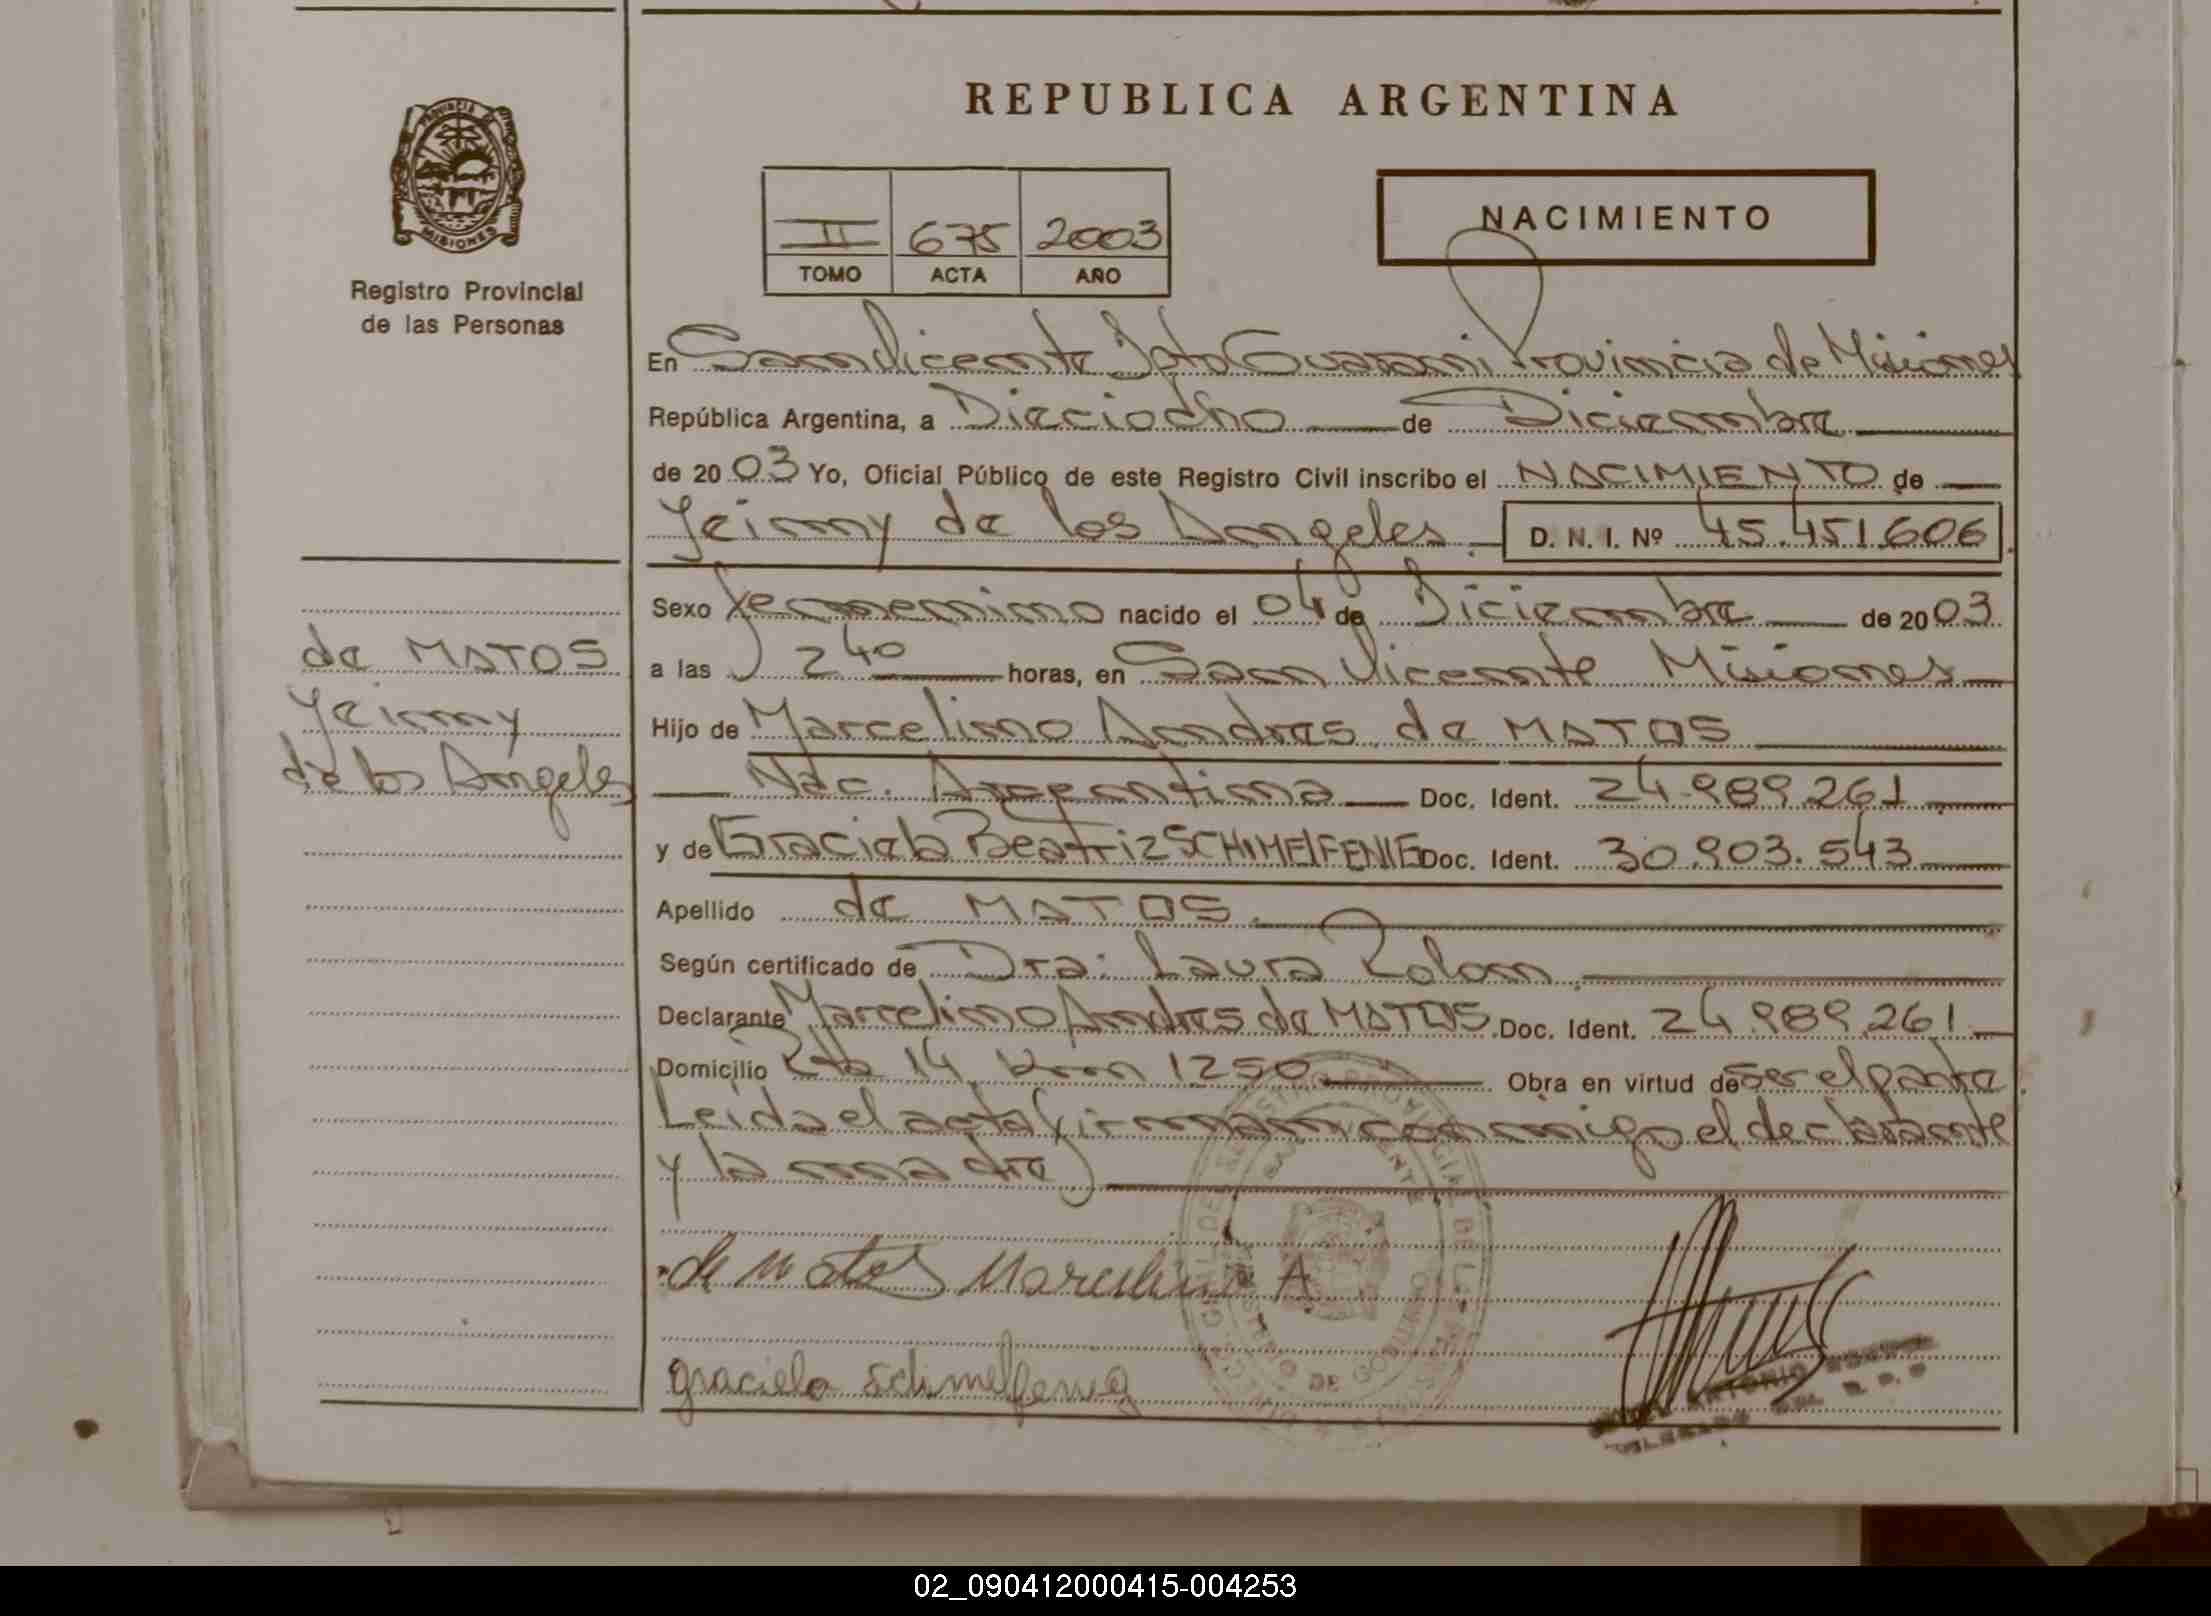 REPUBLICA ARGENTINA
PROVINCIA DE
MISIONES
Registro Provincial
de las Personas
II 675 2003
TOMO ACTA AÑO
NACIMIENTO
En San Vicente Dpto Guarani Provincia de Misiones
República Argentina, a Dieciocho de Diciembre
de 20 03 Yo, Oficial Público de este Registro Civil inscribo el NACIMIENTO de
Yeimy de los Angeles D. N. I. Nº 45.451.606
Sexo femenino nacido el 04 de Diciembre de 20 03
a las 2 40 horas, en San Vicente Misiones
Hijo de Marcelino Andres de MATOS
Nac. Argentina Doc. Ident. 24.989.261
y de Graciela Beatriz SCHIMELFENIG Doc. Ident. 30.903.543
Apellido de MATOS
Según certificado de Dra: Laura Rolon
Declarante Marcelino Andres de MATOS Doc. Ident. 24.989.261
Domicilio Rta 14 Km 1250 Obra en virtud de ser el padre
Leida el acta firman conmigo el declarante
y la madre
de MATOS
Yeimy
de los Angeles
de Matos Marcelino A
graciela schimelfenig
ANTONIO
02_090412000415-004253